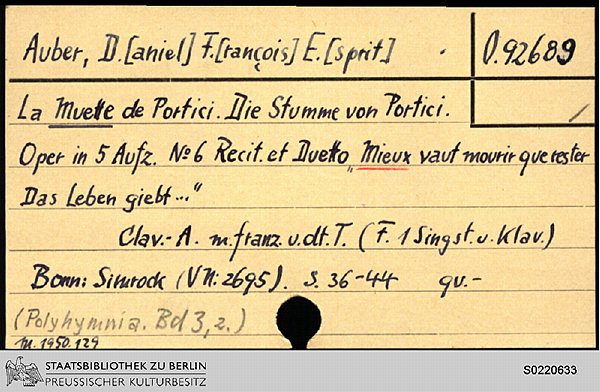 Auber, D.[aniel] F.[rançois] E.[sprit]
O.92689
La Muette de Portici. Die Stumme von Portici.
Oper in 5 Aufz. No 6 Recit. et Duetto „Mieux vaut mourir que rester
Das Leben giebt..."
Clav.-A. m. franz. u. dt. T. (F. 1 Singst. u. Klav.)
Bonn: Simrock (VN: 2695). S. 36-44 qu.-
(Polyhymnia. Bd 3, 2.)
M. 1950.129
STAATSBIBLIOTHEK ZU BERLIN
PREUSSISCHER KULTURBESITZ
S0220633